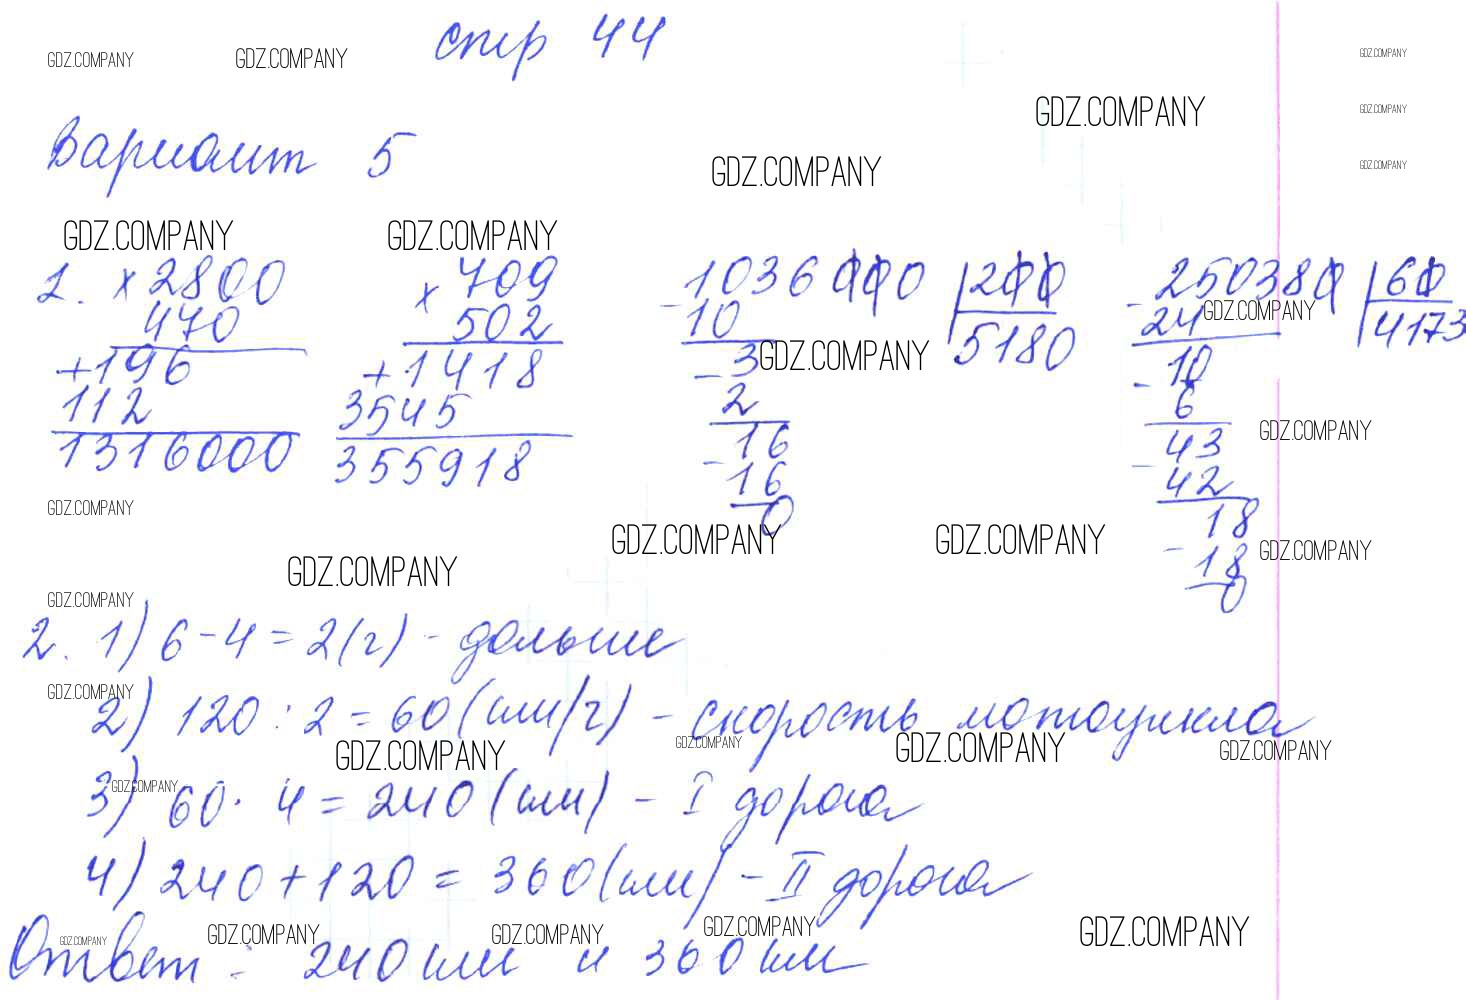 стр 44
GDZ.COMPANY GDZ.COMPANY GDZ.COMPANY
GDZ.COMPANY GDZ.COMPANY
Вариант 5
GDZ.COMPANY GDZ.COMPANY
GDZ.COMPANY GDZ.COMPANY
1. × 2800 × 709 - 1036000 | 200 - 250380 | 60
470 502 10 5180 24 4173
GDZ.COMPANY GDZ.COMPANY
+ 196 + 1418 - 3 - 10
112 3545 2 6
1316000 355918 - 16 - 43
GDZ.COMPANY
16 42
0 18
GDZ.COMPANY GDZ.COMPANY GDZ.COMPANY
- 18
GDZ.COMPANY GDZ.COMPANY
0
GDZ.COMPANY
2. 1) 6 - 4 = 2 (г) - дольше
GDZ.COMPANY
2) 120 : 2 = 60 (км/г) - скорость мотоцикла
GDZ.COMPANY GDZ.COMPANY GDZ.COMPANY GDZ.COMPANY
GDZ.COMPANY
3) 60 · 4 = 240 (км) - I дорога
4) 240 + 120 = 360 (км) - II дорога
GDZ.COMPANY GDZ.COMPANY GDZ.COMPANY GDZ.COMPANY GDZ.COMPANY
Ответ : 240 км и 360 км